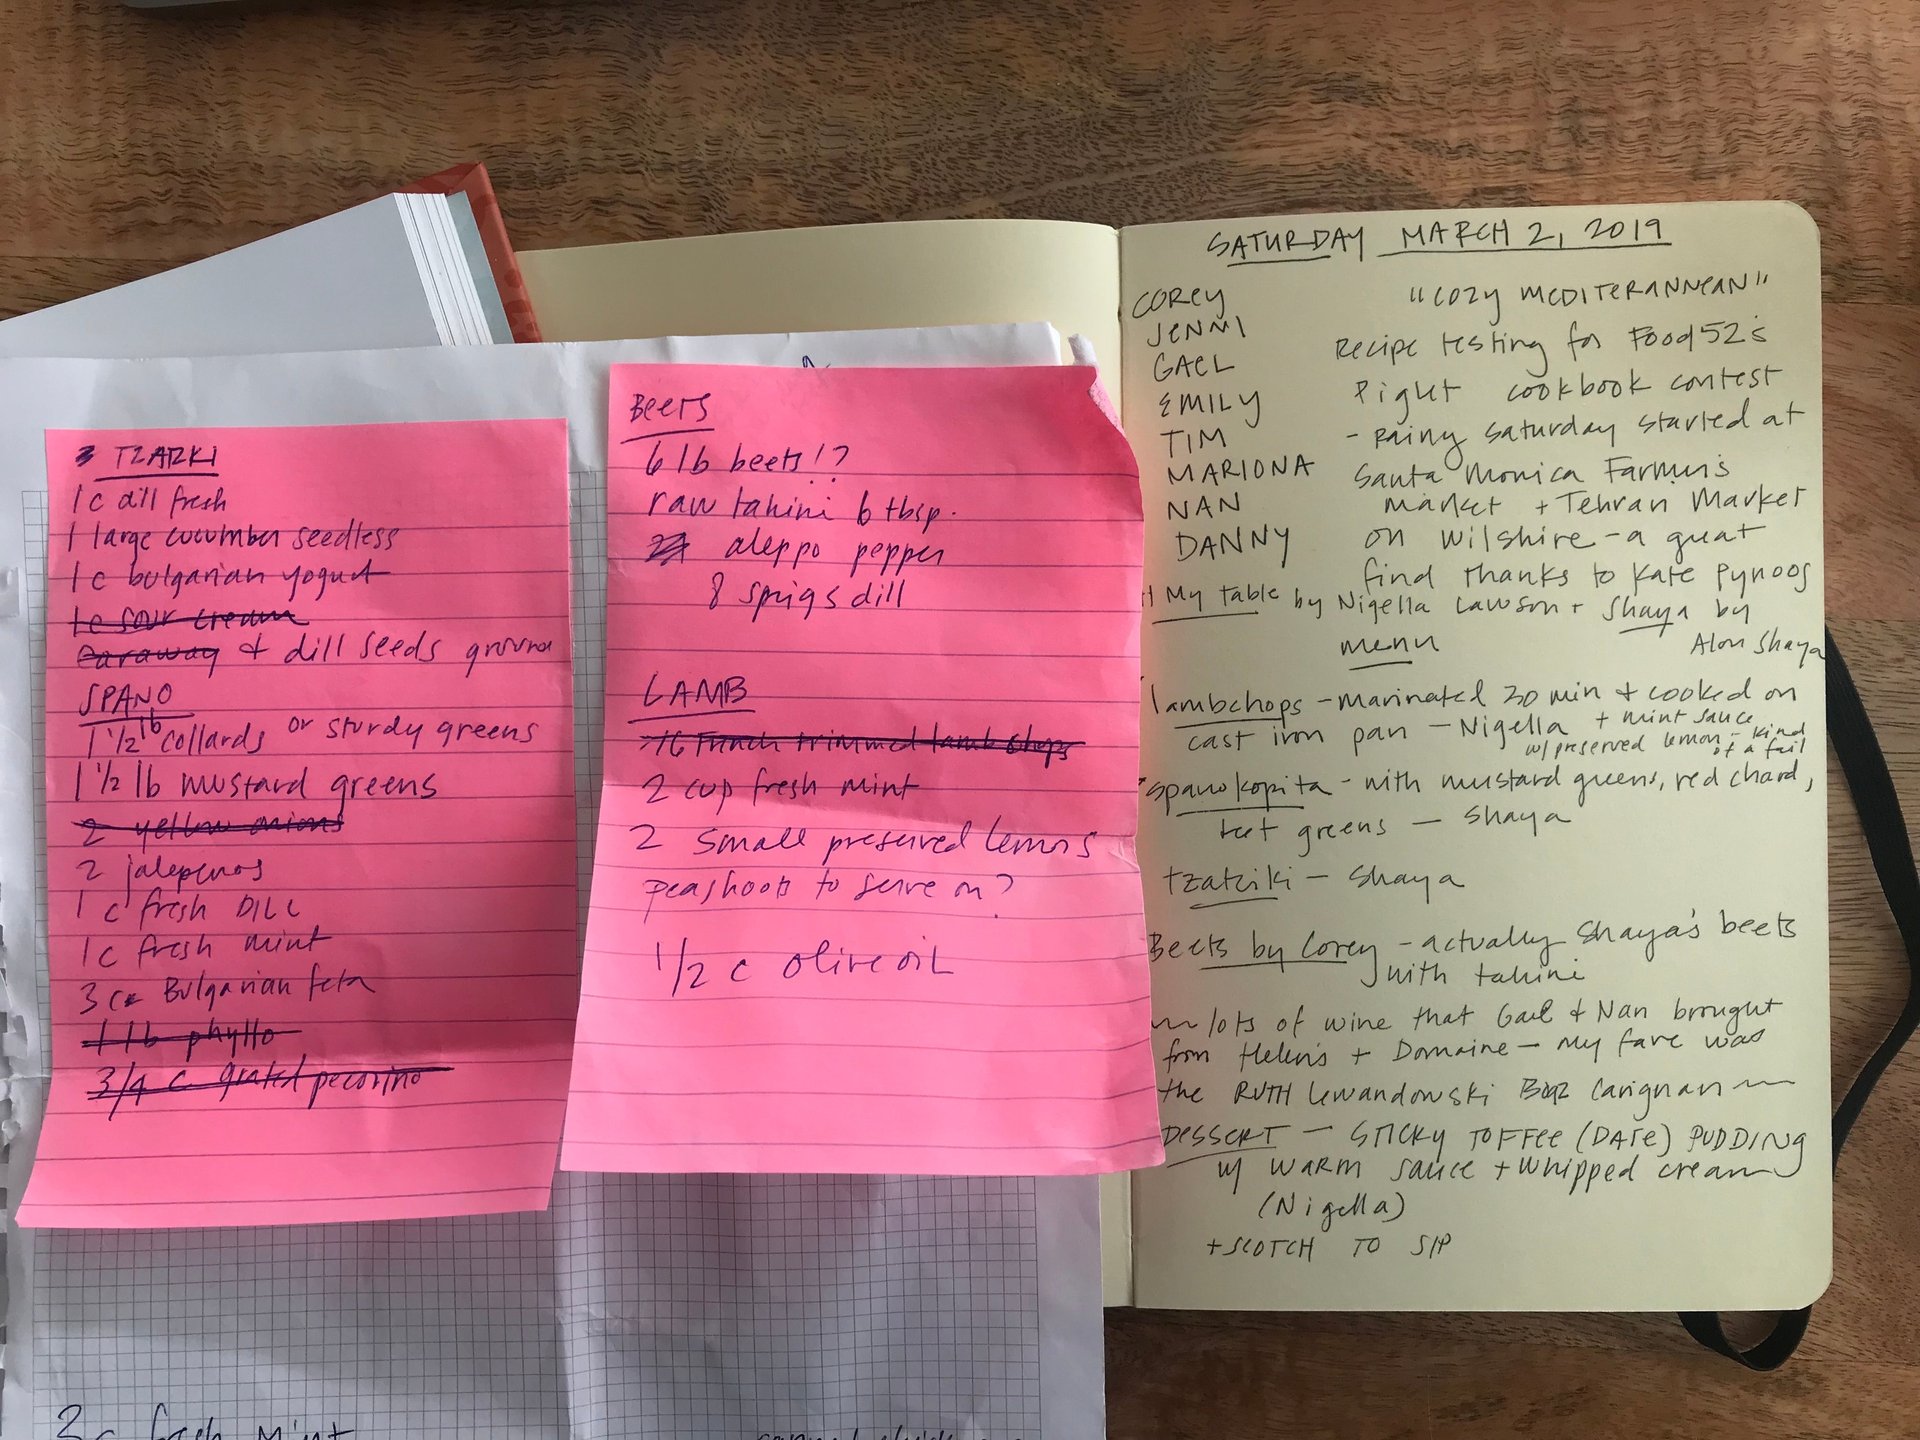 TZATZKI
1 c dill fresh
1 large cucumber seedless
1 c bulgarian yogurt
1 c sour cream
caraway + dill seeds ground
SPANO
1 1/2 lb collards or sturdy greens
1 1/2 lb mustard greens
2 yellow onions
2 jalepenos
1 c fresh DILL
1 c fresh mint
3 c Bulgarian feta
1 lb phyllo
3/4 c grated pecorino
Beets
6 lb beets!?
raw tahini 6 tbsp.
aleppo pepper
8 sprigs dill
LAMB
16 French trimmed lamb chops
2 cup fresh mint
2 small preserved lemons
peashoots to serve on?
1/2 c olive oil
3 c fresh mint
SATURDAY MARCH 2, 2019
COREY
JENNI
GAEL
EMILY
TIM
MARIONA
NAN
DANNY
"COZY MEDITERANNEAN"
Recipe testing for Food52's
Piglet cookbook contest
- Rainy Saturday started at
Santa Monica Farmer's
market + Tehran Market
on Wilshire - a great
find thanks to Kate Pynoos
At My table by Nigella Lawson + Shaya by
Alon Shaya
menu
lambchops - marinated 20 min + cooked on
cast iron pan - Nigella + mint sauce
w/ preserved lemon - kind
of a fail
spanokopita - with mustard greens, red chard,
beet greens - Shaya
tzatziki - Shaya
Beets by Corey - actually Shaya's beets
with tahini
lots of wine that Gael + Nan brought
from Helen's + Domaine - my fave was
the RUTH Lewandowski Boaz Carignan
DESSERT - STICKY TOFFEE (DATE) PUDDING
w/ WARM SAUCE + whipped cream
(Nigella)
+ SCOTCH TO SIP